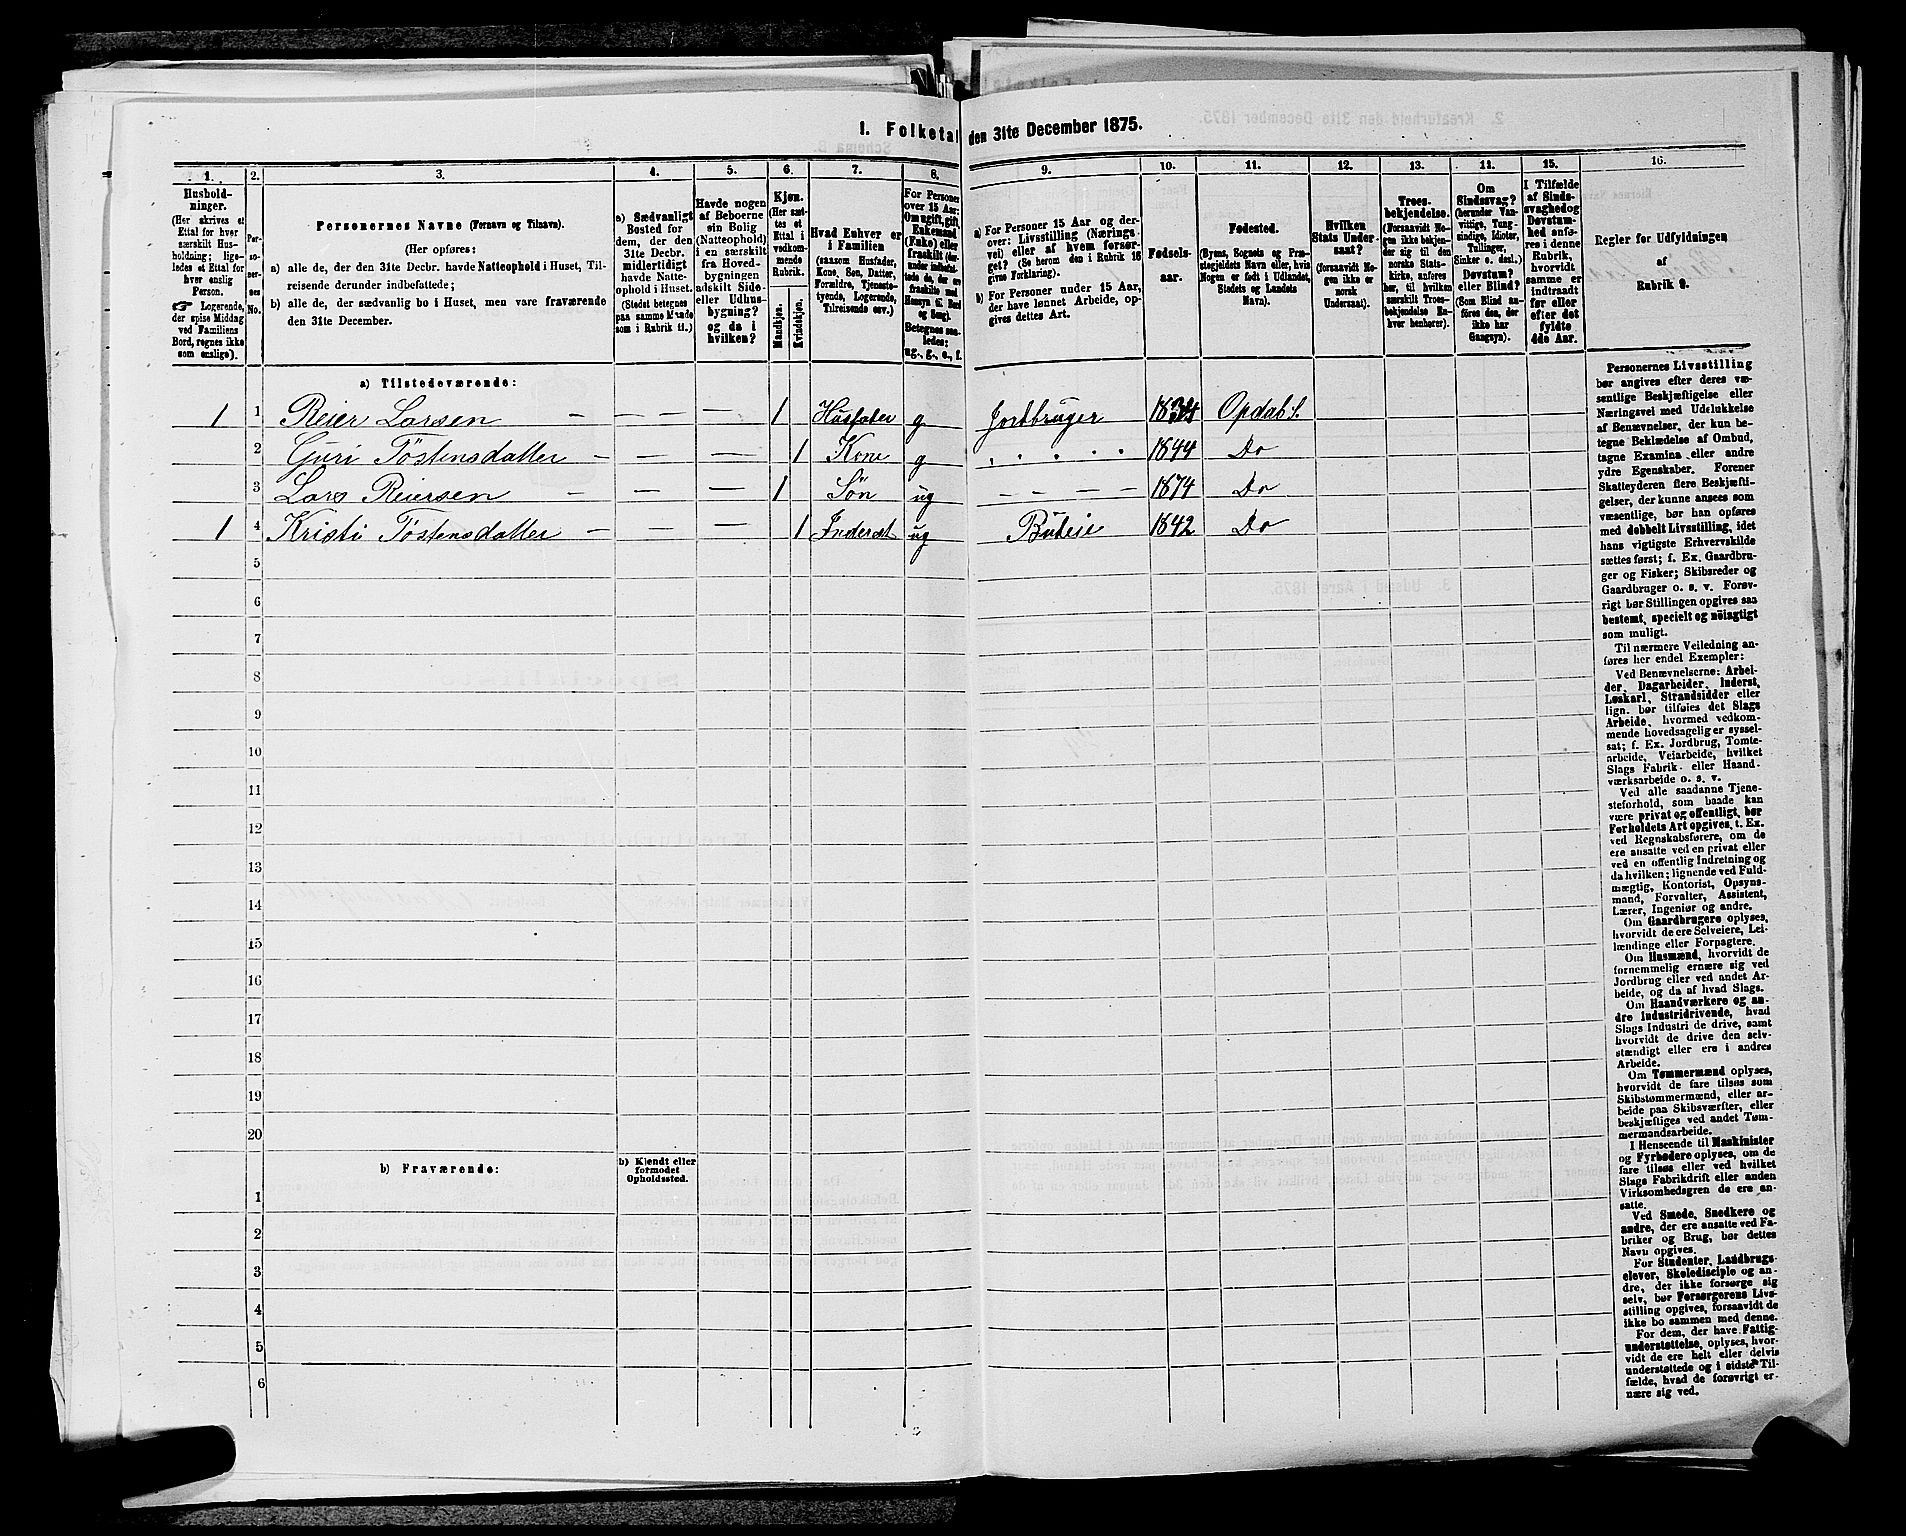 1. Folketal den 31te December 1875.
1. 2. 3. 4. 5. 6. 7. 8. 9. 10. 11. 12. 13. 14. 15. 16.
Husholdninger.
(Her skrives et
Ettal for hver
særskilt Husholdning;
ligeledes et Ettal for
hver enslig
Person.
☞ Logerende,
der spise Middag
ved Familiens
Bord, regnes ikke
som enslige).
Personernes No.
Personernes Navne (Fornavn og Tilnavn).
(Her opføres:
a) alle de, der den 31te Decbr. havde Natteophold i Huset, Tilreisende derunder indbefattede;
b) alle de, der sædvanlig bo i Huset, men vare fraværende
den 31te December.
a) Sædvanligt
Bosted for
dem, der den
31te Decbr.
midlertidigt
havde Natteophold
i Huset.
(Stedet betegnes
paa samme Maade
som i Rubrik 11.)
Havde nogen
af Beboerne
sin Bolig
(Natteophold)
i en særskilt
fra Hovedbygningen
adskilt Side-
eller Udhusbygning?
og da i
hvilken?
Kjøn.
(Her sættes et
Ettal i
vedkommende
Rubrik.
Mandkjøn.
Kvindekjøn.
Hvad Enhver er
i Familien
(saasom Husfader,
Kone, Søn, Datter,
Forældre, Tjenestetyende,
Logerende,
Tilreisende osv.)
For Personer
over 15 Aar:
Om ugift, gift
Enkemand
(Enke) eller
fraskilt
Betegnes saaledes:
ug., g., e., f.
a) For Personer 15 Aar og derover:
Livsstilling (Næringsvei)
eller af hvem forsørget?
(Se herom den i Rubrik 16
givne Forklaring).
b) For Personer under 15 Aar,
der have lønnet Arbeide, opgives
dettes Art.
Fødselsaar.
Fødested.
(Byens, Sognets og Præstegjeldets
Navn eller, hvis
Nogen er født i Udlandet,
Stedets og Landets
Navn).
Hvilken
Stats Undersaat?
(forsaavidt Nogen
ikke er
norsk
Undersaat).
Troesbekjendelse.
(Forsaavidt Nogen
ikke bekjender
sig til den
norske Statskirke,
anføres
her, til hvilken
særskilt Troesbekjendelse
Enhver
henhører).
Om
Sindssvag?
(herunder Vanvittige,
Tungsindige,
Idioter,
Tullinger,
Sinker o. desl.)
Døvstum?
eller Blind?
(Som Blind anføres
den, der
ikke har
Gangsyn).
I Tilfælde
af Sindssvaghed
og
Døvstumhed
anføres
i denne
Rubrik,
hvorvidt
samme er
indtraadt
før eller
efter det
fyldte
4de Aar.
Regler for Udfyldningen
af
Rubrik 9.
a) Tilstedeværende:
1 1 Reier Larsen – – – – 1 Husfader g Jordbruger 1834 Opdal f.
2 Guri Töstensdatter – – – – 1 Kone g " " " " " 1844 Do
3 Lars Reiersen – – – 1 Søn ug – – – – 1874 Do
1 4 Kristi Töstensdatter – – – 1 Inderst ug Budeie 1842 Do
5
6
7
8
9
10
11
12
13
14
15
16
17
18
19
20
b) Fraværende:
b) Kjendt eller
formodet
Opholdssted.
1
2
3
4
5
6
Personernes Livsstilling
bør angives efter deres væsentlige
Beskjæftigelse eller
Næringsvei med Udelukkelse
af Benævnelser, der kun betegne
Beklædelse af Ombud,
tagne Examina eller andre
ydre Egenskaber. Forener
Skatteyderen flere Beskjæftigelser,
der kunne ansees som
væsentlige, bør han opføres
med dobbelt Livsstilling, idet
hans vigtigste Erhvervskilde
sættes først; f. Ex. Gaardbruger
og Fisker; Skibsreder og
Gaardbruger o. s. v. Forøvrigt
bør Stillingen opgives saa
bestemt, specielt og nöiagtigt
som muligt.
Til nærmere Veiledning anføres
her endel Exempler:
Ved Benævnelserne: Arbeider,
Dagarbeider, Inderst,
Løskarl, Strandsidder eller
lign. bør tilføies det Slags
Arbeide, hvormed vedkommende
hovedsagelig er sysselsat;
f. Ex. Jordbrug, Tomtearbeide,
Veiarbeide, hvilket
Slags Fabrik- eller Haandværksarbeide
o. s. v.
Ved alle saadanne Tjenesteforhold,
som baade kan
være privat og offentligt, bør
Forholdets Art opgives, t. Ex.
ved Regnskabsførere, om de
ere ansatte ved en privat eller
ved en offentlig Indretning og
da hvilken; lignende ved Fuldmægtig,
Kontorist, Opsynsmand,
Forvalter, Assistent,
Lærer, Ingeniør og andre.
Om Gaardbrugere oplyses,
hvorvidt de ere Selveiere, Leilændinge
eller Forpagtere.
Om Husmænd, hvorvidt de
fornemmelig ernære sig ved
Jordbrug eller ved andet Arbeide,
og da af hvad Slags.
Om Haandværkere og andre
Industridrivende, hvad
Slags Industri de drive, samt
hvorvidt de drive den selvstændigt
eller ere i andres
Arbeide.
Om Tømmermænd oplyses,
hvorvidt de fare tilsøs som
Skibstømmermænd, eller arbeide
paa Skibsværfter, eller
beskjæftiges ved andet Tømmermandsarbeide.
I Henseende til Maskinister
og Fyrbødere oplyses, om de
fare tilsøs eller ved hvilket
Slags Fabrikdrift eller anden
Virksomhedsgren de ere ansatte.
Ved Smede, Snedkere og
andre, der ere ansatte ved Fabriker
og Brug, bør dettes
Navn opgives.
For Studenter, Landbrugselever,
Skoledisciple og andre,
der ikke forsørge sig
selv, bør Forsørgerens Livsstilling
opgives, forsaavidt de
ikke bo sammen med denne.
For dem, der have Fattigunderstøttelse,
oplyses, hvorvidt
de ere helt eller delvis
understøttede og i sidste Tilfælde,
hvad de forøvrigt ernære
sig ved.